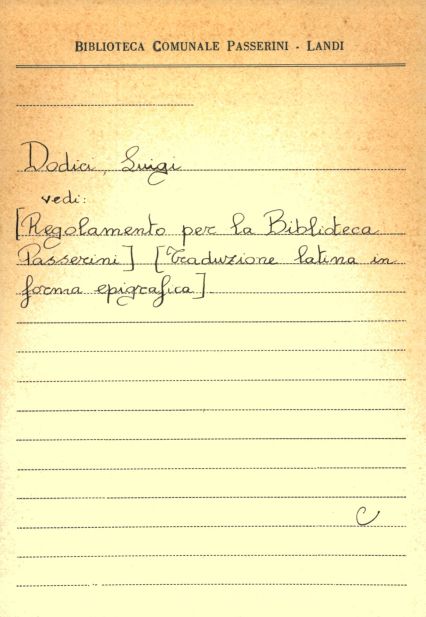 BIBLIOTECA COMUNALE PASSERINI - LANDI
Dodici, Luigi
vedi:
[Regolamento per la Biblioteca
Passerini] [Traduzione latina in
forma epigrafica]
C